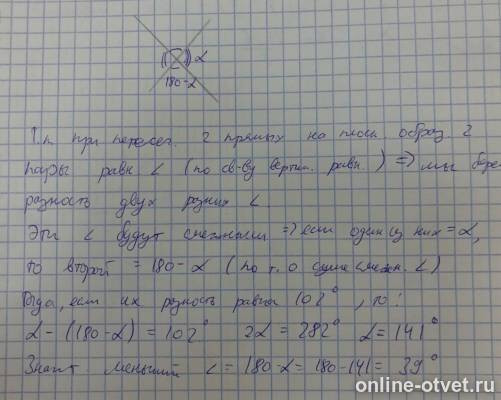 α
180-α
Т.к при пересеч. 2 прямых на плоск. образ. 2
пары равн ∠ (по св-ву вертик. равн.) => мы бере
разность двух разных ∠.
Эти ∠ будут смежными => если один из них = α,
то второй = 180-α (по т. о сумме смежн. ∠)
Тогда, если их разность равна 102°, то:
α - (180-α) = 102° 2α = 282° α = 141°
Значит меньший ∠ = 180-α = 180-141 = 39°
online-otvet.ru